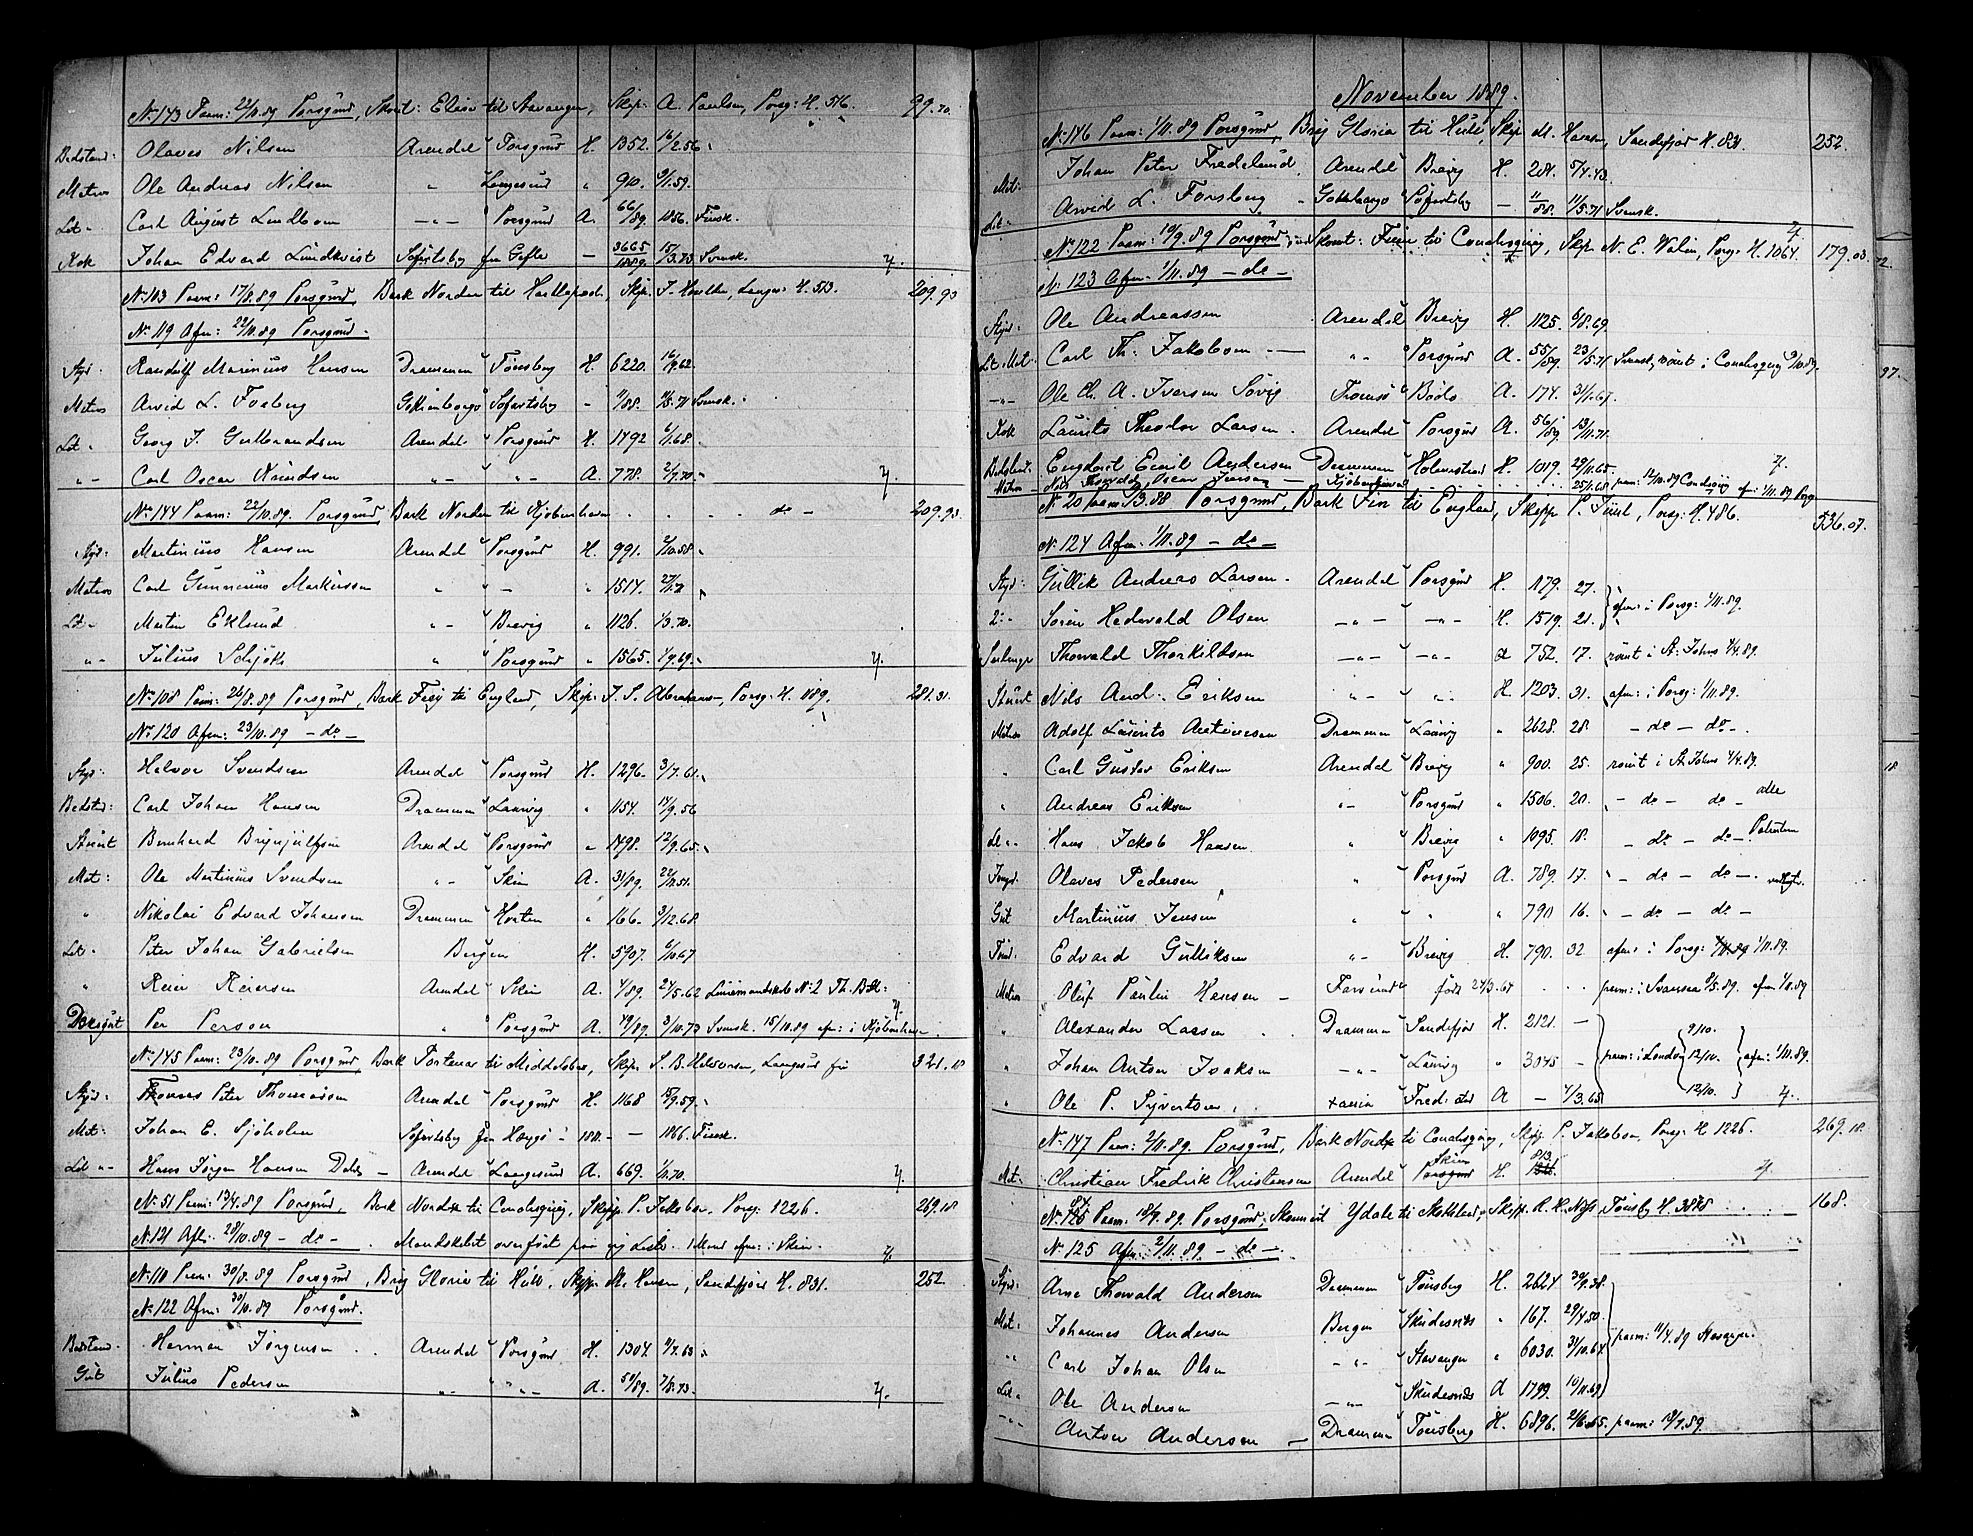 No 143 Paam: 22/10.89 Porsgrund, Skont: Elise til Stavanger, Skip: A. Paulsen, Porsg: H. 516. 99.70.
Bedstand: Olaves Nilsen Arendal Porsgrund H. 1352. 16/2.56
Matros Ole Andreas Nilsen " Langesund " 910. 9/1.59.
Let " Carl August Lindbom —"— Porsgrund A. 66/89. 1856. Finsk.
Kok Johan Edvard Lundkvist Söfartsby fra Gefle — 3665/1889. 15/3.73 Svensk.
No 103 Paam: 17/8.89 Porsgrund, Bark Norden til Hartlepool, Skip. J. Langes: H. 513. 209.93
No 119 Afm: 22/10.89 Porsgrund.
Styr. Randulf Marinius Hansen Drammen Tönsberg H. 6220. 16/9.62.
Matros Arvid L. Fosberg Gothenborgs Söfartsby — 11/88. 11/5.71 Svensk.
Let " Georg J. Gulbrandsen Arendal Porsgrund H. 1492 6/1.68.
" — Carl Oscar Knudsen " " — A. 778. 2/7.70
No 144 Paam: 22/10.89. Porsgrund, Bark Norden til Kjöbenhavn . . . . do — 209.93.
Styr: Martinius Hansen Arendal Porsgrund H. 991. 2/10.58
Matros Carl Gunnerius Markussen " " — " 1514.
Let — Martin Eklund " — Brevig " 1126. 1/3.70.
" — Julius Schjöth " Porsgrund " 1565. 1/9.69.
No 108 Paam: 26/8.89 Porsgrund, Bark Freg til England, Skip: J. S. Abrahams—, Porsg: H. 1189. 281.31.
No 120 Afm: 23/10.89 — do —
Styr: Halvor Svendsen Arendal Porsgrund H. 1296. 3/7.61
Bedstd: Carl Johan Hansen Drammen Laurvig " 1154. 14/9.56
Stuert Bernhard Brynjulfsen Arendal Porsgrund " 1498. 12/9.65.
Mat: Ole Martinius Svendsen " — Skien A. 31/89. 22/12.51.
" Nikolai Edvard Johansen Drammen Horten " 166. 3/12.68
Let " Peter Johan Gabrielsen Bergen H. 5907. 6/10.67
" Reier Reiersen Arendal Skien A. 4/89. 24/5.62 Linemandskab No 2 Th. Bat:
Per Person " Porsgrund A. 49/89. 3/10.73 Svensk. 15/10.89 afm: i Kjöbenhavn
No 145 Paam: 23/10.89 Porsgrund, Bark til Middelsbro, Skip. S. B. Halvorsen, Langesund 321.18
Styr: Thomas Peter Thomassen Arendal Porsgrund H. 1168 15/9.59.
Mat: Johan E. Sjöholm Söfartsby fra — 1811. — 1866. Finsk.
Let "— Hans Jörgen Hansen Dahl — Arendal Langesund A. 669. 1/11.70.
No 51 Paam: 13/4.89 Porsgrund, Bark til Conahsquay, Skip P. Jakobsen, Porsg. 1226. 269.18
No 121 Afm: 28/10.89 — do — . Mandskabet overfört paa ny Liste. 1 Mand afm: i Skien.
No 110 Paam: 30/8.89 Porsgrund, Brig Gloria til Hull, Skip. M. Hansen, Sandefjord H. 831. 252
No 122 Afm: 30/10.89 Porsgrund.
Bedstand. Herman Jörgensen . . Arendal Porsgrund H. 1304. 11/7.63
Gut Julius Pedersen " — " " — A. 51/89. 7/8.73.
November 1889.
No 146 Paam: 1/11.89 Porsgrund, Brig Gloria til Hull, Skip M. Hansen, Sandefjor H. 831. 252.
Mat: Johan Peter Fredelund. Arendal Brevig H. 284. 5/4.43.
Let — Arvid L. Forsberg " Gothborgs Söfartsby — 11/88. 11/5.71 Svensk.
No 122 Paam: 10/9.89 Porsgrund, Skont: til Conahsquay, Skip. N. E. Walin, Porsg: H. 1064. 179.03
No 123 Afm. 1/11.89 — do —
Styr: Ole Andreassen Arendal Brevig H. 1125. 6/8.69.
Let Mat: Carl Th. Jakobson — " " Porsgrund A. 55/89. 23/5.71 Svensk, römt i Conahsquay 9/10.89.
— " — Ole Ch. A. Iversen Sövig Tromsö Bodö A. 174. 3/1.67.
Kok Laurits Theodor Larsen. Arendal Porsgrund A. 56/89. 13/11.71.
Bedstand. Engebret Emil Andersen Drammen Holmestrand H. 1019. 29/11.65.
Matros Nils Thorvald Oscar Jensen — Kjöbenhavn . . . . 25/1.68 paam: 12/10.89 Conahsquay afm: 1/11.89 Porsg
No 20 paam 1/3.88 Porsgrund, Bark Fin til England, Skipp P. Juul, Porsg: H. 486. 536.07.
No 124 Afm. 1/11.89 — do —
Styr: Gullik Andreas Larsen. Arendal Porsgrund H. 1179. 27.
2: — Sören Hedevald Olsen — " — — " — H. 1519. 21. afm: i Porsg: 1/11.89.
Thorvald Thorkildsen — " — — " — A 752. 17. römt i St. Johns 4/4.89.
Stuert Nils And. Eriksen " — " H. 1203. 31. afm: i Porsg: 1/11.89.
Matros Adolf Laurits Antonesen Drammen Laurvig " 2628. 28. — do — do —
" Carl Gustav Eriksen Arendal Brevig " 900. 25. römt i St Johns 4/4.89.
" Andreas Eriksen " — Porsgrund " 1506. 20. — do — do — alle
Let " Hans Jakob Hansen " Brevig " 1095. 18. — do — do —
Jungm. Olaves Pedersen " Porsgrund A. 789. 17. " — do — do —
Gut Martinius Jensen " " " 791. 16. " — do — do —
Töm: Edvard Gulliksen " — Brevig H. 790. 32. afm: i Porsg: 1/11.89.
Matros Oluf Paulin Hansen — Farsund född 24/3.64 . . paam: i Svansea 8/5.89. afm 1/11.89
" Alexander Larsen . Drammen Sandefjor H. 2121. — 9/10.
" Johan Anton Isaksen — " — Laurvig " 3045 — paam: i London 12/10. afm: 1/11.89.
" Ole P. Syvertsen . . Xania Fredrikstad A — 4/3.65 12/10.
No 147 Paam: 2/11.89. Porsgrund, Bark til Conahsquay, Skipp. P. Jakobsen, Porsg: H 1226. 269.18
Mat. Christian Fredrik Christensen Arendal Skien H. 813.
No Paam: 18/4.89. Porsgrund, Skonnert Ydale til Skotland, Skipp. A. H. Tönsb H. 168.
No 125 Afm. 2/11.89 — do —
Styr: Arne Thorvald Andersen Drammen Tönsberg H. 2624 30/9.38.
Mat: Johannes Andersen Bergen Skudesnäs " 167. 29/4.50.
" " Carl Johan Olsen — " — Stavanger " 6030. 31/10.64 paam: 11/4.89 Stavanger
Let " Ole Andersen — " — Skudesnäs A 1799. 10/11.69
— " — Anton Andersen — Drammen Tönsberg H. 6896. 21/6.65. paam: 18/7.89.